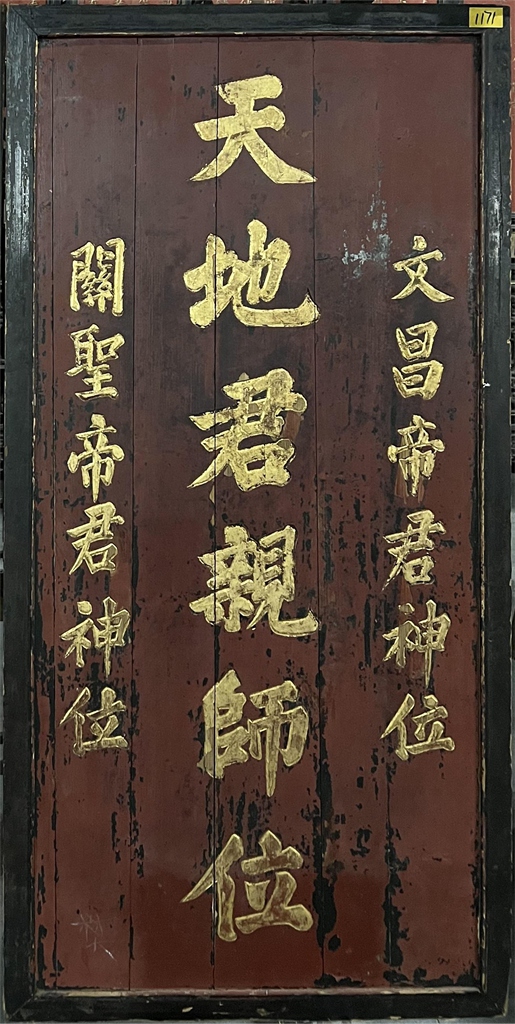 1171
文昌帝君神位
天地君親師位
關聖帝君神位